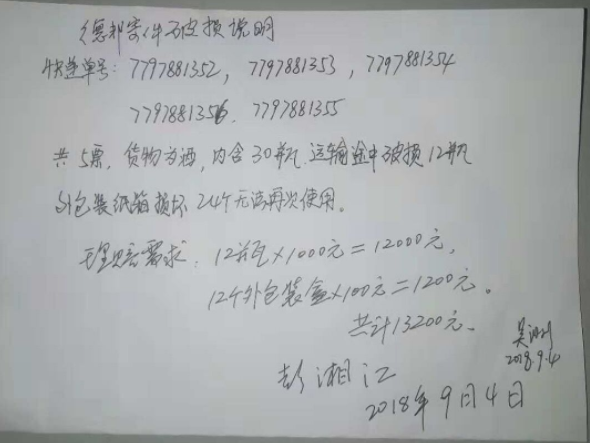 德邦寄件破损说明
快递单号：7797881352，7797881353，7797881354
7797881356、7797881355
共5票，货物为酒，内含30瓶，运输途中破损12瓶
外包装纸箱损坏24个无法再次使用。
理赔需求：12瓶×1000元＝12000元，
12个外包装盒×100元＝1200元。
共计13200元。
吴
2018.9.4
彭湘江
2018年9月4日